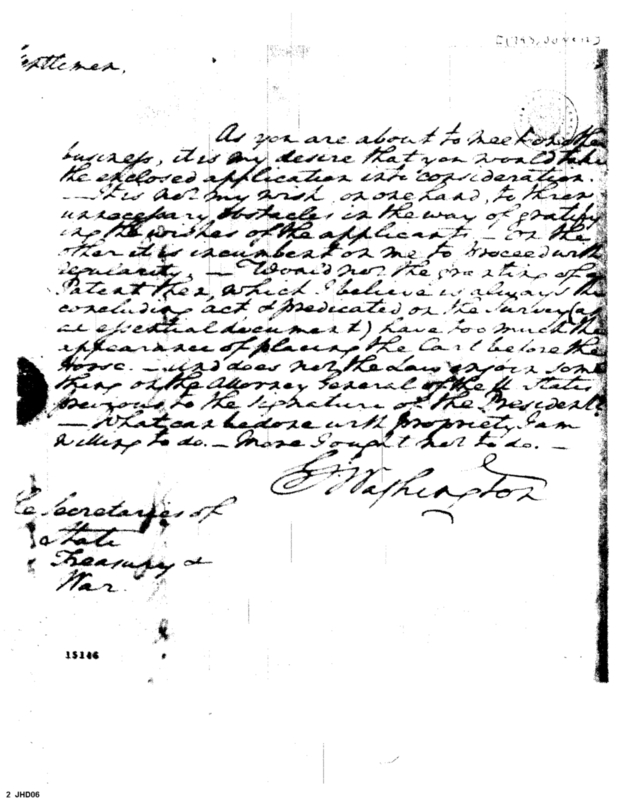 Gentlemen,
As you are about to meet on other
business, it is my desire that you would take
the enclosed application into consideration.
— It is not my wish, on one hand, to throw
unnecessary obstacles in the way of gratify
ing the wishes of the applicants. — On the
other it is incumbent on me to proceed with
regularity. — Would not the granting of a
Patent then, which I believe is always the
concluding act, & predicated on the Survey (as
an essential document) have too much the
appearance of placing the Cart before the
horse. — And does not the Law enjoin some
thing on the Attorney General of the U States
previous to the signature of the President?
— What can be done with propriety I am
willing to do. — More I ought not to do. —
G: Washington
The Secretaries of
State
Treasury &
War
15146
2 JHD06